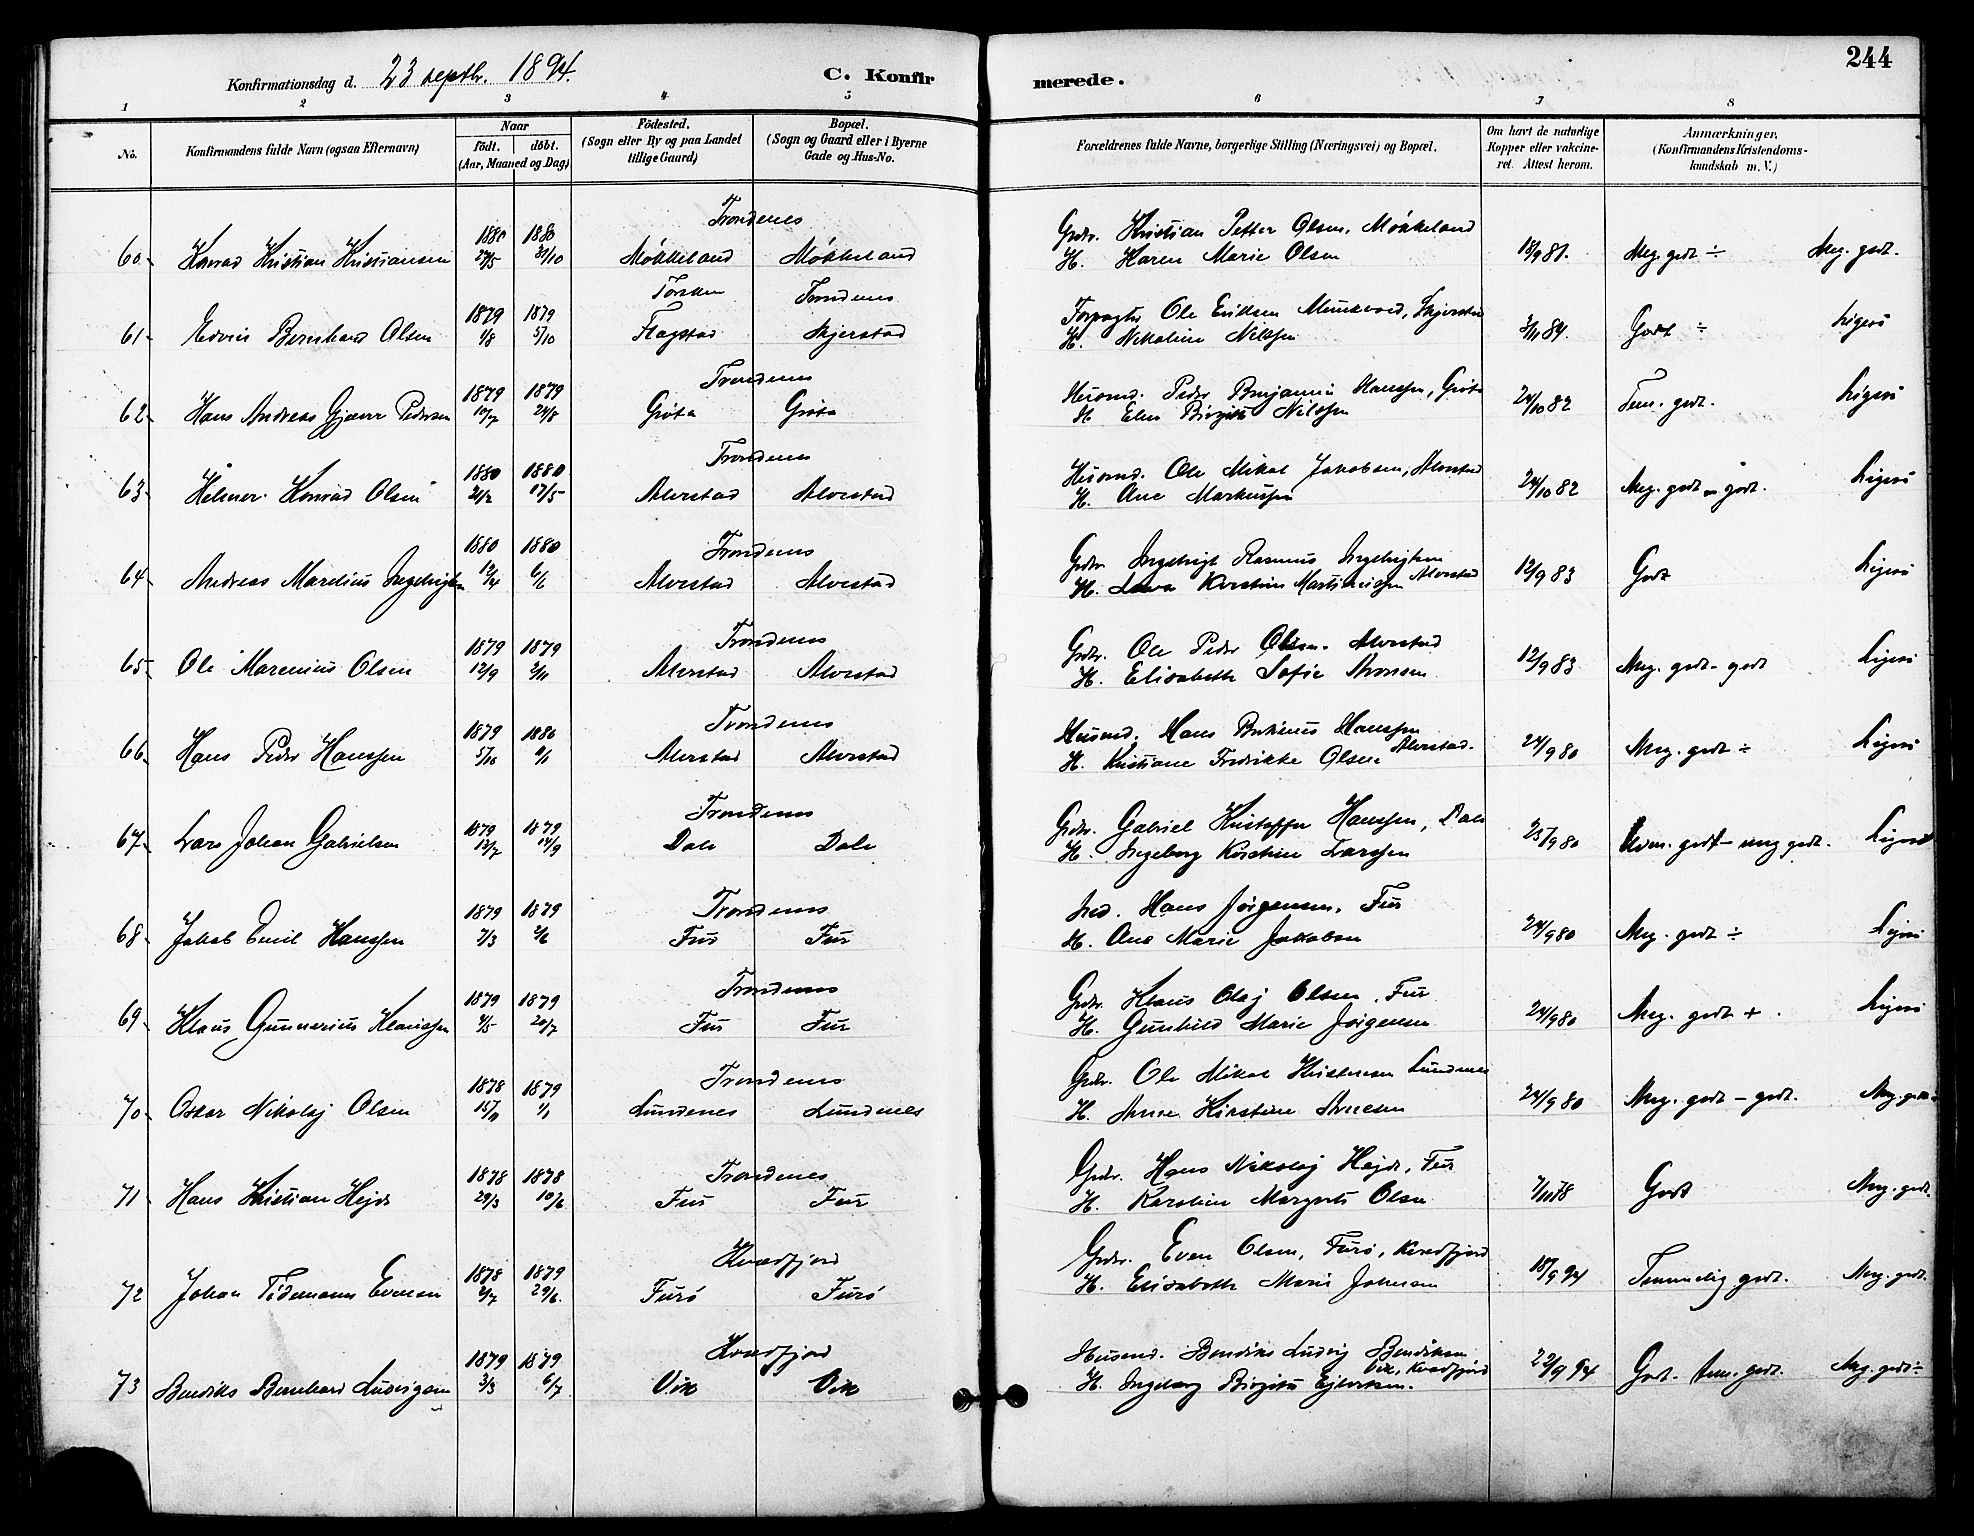 244
Konfirmationsdag d. 23 septbr. 1894.
C. Konfirmerede.
1 2 3 4 5 6 7 8
No. Konfirmandens fulde Navn (ogsaa Efternavn) Naar födt. döbt. (Aar, Maaned og Dag) Födested. (Sogn eller By og paa Landet tillige Gaard) Bopæl. (Sogn og Gaard eller i Byerne Gade og Hus-No. Forældrenes fulde Navne, borgerlige Stilling (Næringsvei) og Bopæl. Om havt de naturlige Kopper eller vakcineret. Attest herom. Anmærkninger. (Konfirmandens Kristendomskundskab m. V.)
1880 1880 Trondenes Grdbr. Kristian Petter Olsen, Møkkeland
60 Konrad Kristian Kristiansen 31/10 Møkkeland Møkkeland H. Karen Marie Olsen 18/9 81. Meg. godt ÷ Meg. godt.
1879 1879 Torsken Trondenes Forpagter Ole Eriksen
61 Edvin Bernhard Olsen 1/8 5/10 Flagstad Skjerstad H. Nikoline Nilssen 3/11 84. Godt ÷ Ligeså
1879 1879 Trondenes Husmd. Peder Benjamin Hanssen, Grøta
62 Hans Andreas Gjæver Pedersen 24/8 Grøta Grøta H. Elen Birgitte Nilssen 24/10 82 Tem. godt. Ligeså
1880 1880 Trondenes Husmd. Ole Mikal Jakobsen, Alvestad
63 Hilmer Konrad Olsen 21/2 17/5 Alvestad Alvestad H. Ane Markussen 24/10 82 Meg. godt - godt. Ligeså
1880 1880 Trondenes Grdbr. Ingebrigt Rasmus Ingebrigtsen
64 Andreas Marelius Ingebrigtsen 12/4 6/6 Alvestad Alvestad H. Kirstine Martinussen Alvestad 12/9 83 Godt Ligeså
1879 1879 Trondenes Grdbr. Ole Peder Olsen. Alvestad
65 Ole Marenius Olsen 12/9 2/11 Alvestad Alvestad H. Elisabeth Sofie Aronsen 12/9 83 Meg. godt - godt Ligeså
1879 1880 Trondenes Husmd. Hans Hanssen
66 Hans Peder Hanssen 5/10 Alvestad Alvestad H. Kristiane Fredrikke Olsen Alvestad. 24/9 80 Meg. godt ÷ Ligeså
1879 1879 Trondenes Grdbr. Gabriel Kristoffer Hanssen, Dale
67 Lars Johan Gabrielsen 13/7 14/9 Dale Dale H. Ingeborg Kirstine Larssen 25/9 80 Udm. godt - meg godt. Ligeså
1879 1879 Trondenes Ind. Hans Jørgensen, Fus
68 Jakob Emil Hanssen 7/3 2/6 Fus Fus H. Ane Marie Jakobsen 24/9 80 Meg. godt ÷ Ligeså
1879 1879 Trondenes Grdbr. Klaus Olaj Olsen, Fus
69 Klaus Gunnerius Klaussen 4/5 20/7 Fus Fus H. Gunhild Marie Jørgensen 24/9 80 Meg. godt + Ligeså
1878 1879 Trondenes Grdbr. Ole Mikal Kristensen Lundenes
70 Oskar Nikolaj Olsen 15/11 1/1 Lundenes Lundenes H. Anne Kirstine Arnesen 24/9 80 Meg. godt - godt. Meg. godt
1878 1878 Trondenes Grdbr. Hans Nikolaj Hejde, Fus
71 Hans Kristian Hejde 29/3 10/6 Fus Fus H. Karoline Margrete Olsen 7/11 78 Godt Meg. godt.
1878 1879 Kvædfjord Grdbr. Even Olsen, Fusø, Kvædfjord
72 Johan Tidemann Evensen 2/7 29/6. Fusø Fusø H. Elisabeth Marie Johnsen 18/9 94 Temmelig godt. Meg. godt.
1879 1879 Kvædfjord Husmd. Bendiks Ludvig Bendiksen
73 Bendiks Bernhard Ludvigsen 3/3 6/7 Vik Vik H. Ingeborg Birgitte Ejlertsen. Vik, Kvædfjord 22/9 94 Godt. tem. godt. Meg. godt ÷